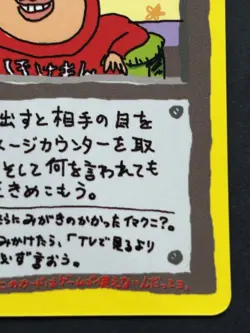 ぽけもん
出すと相手の目を
メージカウンターを取
そして何を言われても
ときめこもう。
らにみがきのかかったイマクニ?。
みかけたら、「TVで見るより
必ず言おう。
このカードはゲームで使えないんだっショ。